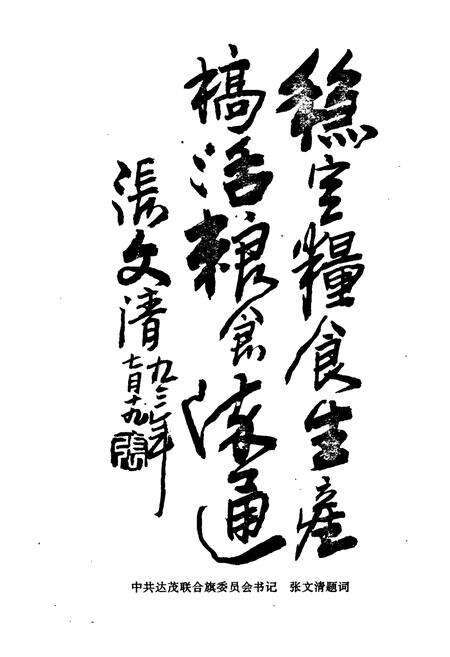 稳定糧食生産
槁活粮食流通
張文清
九三年
七月十九
張
中共达茂联合旗委员会书记 张文清题词